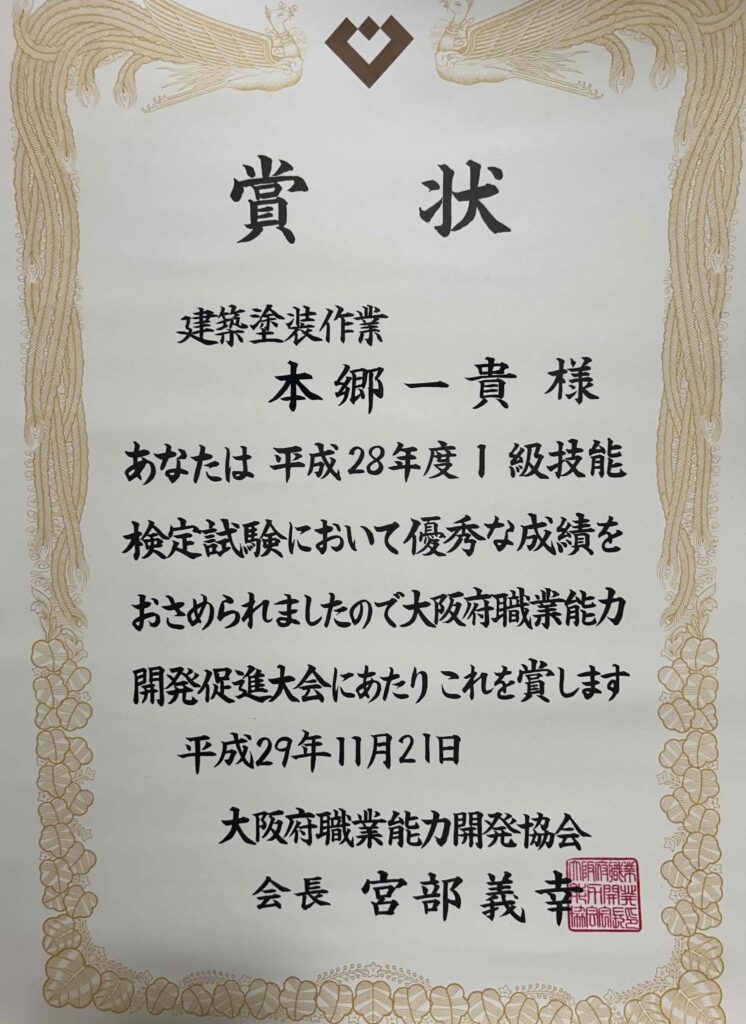 賞状
建築塗装作業
本郷一貴 様
あなたは 平成28年度 1 級技能
検定試験において優秀な成績を
おさめられましたので大阪府職業能力
開発促進大会にあたり これを賞します
平成29年11月21日
大阪府職業能力開発協会
会長 宮部義幸